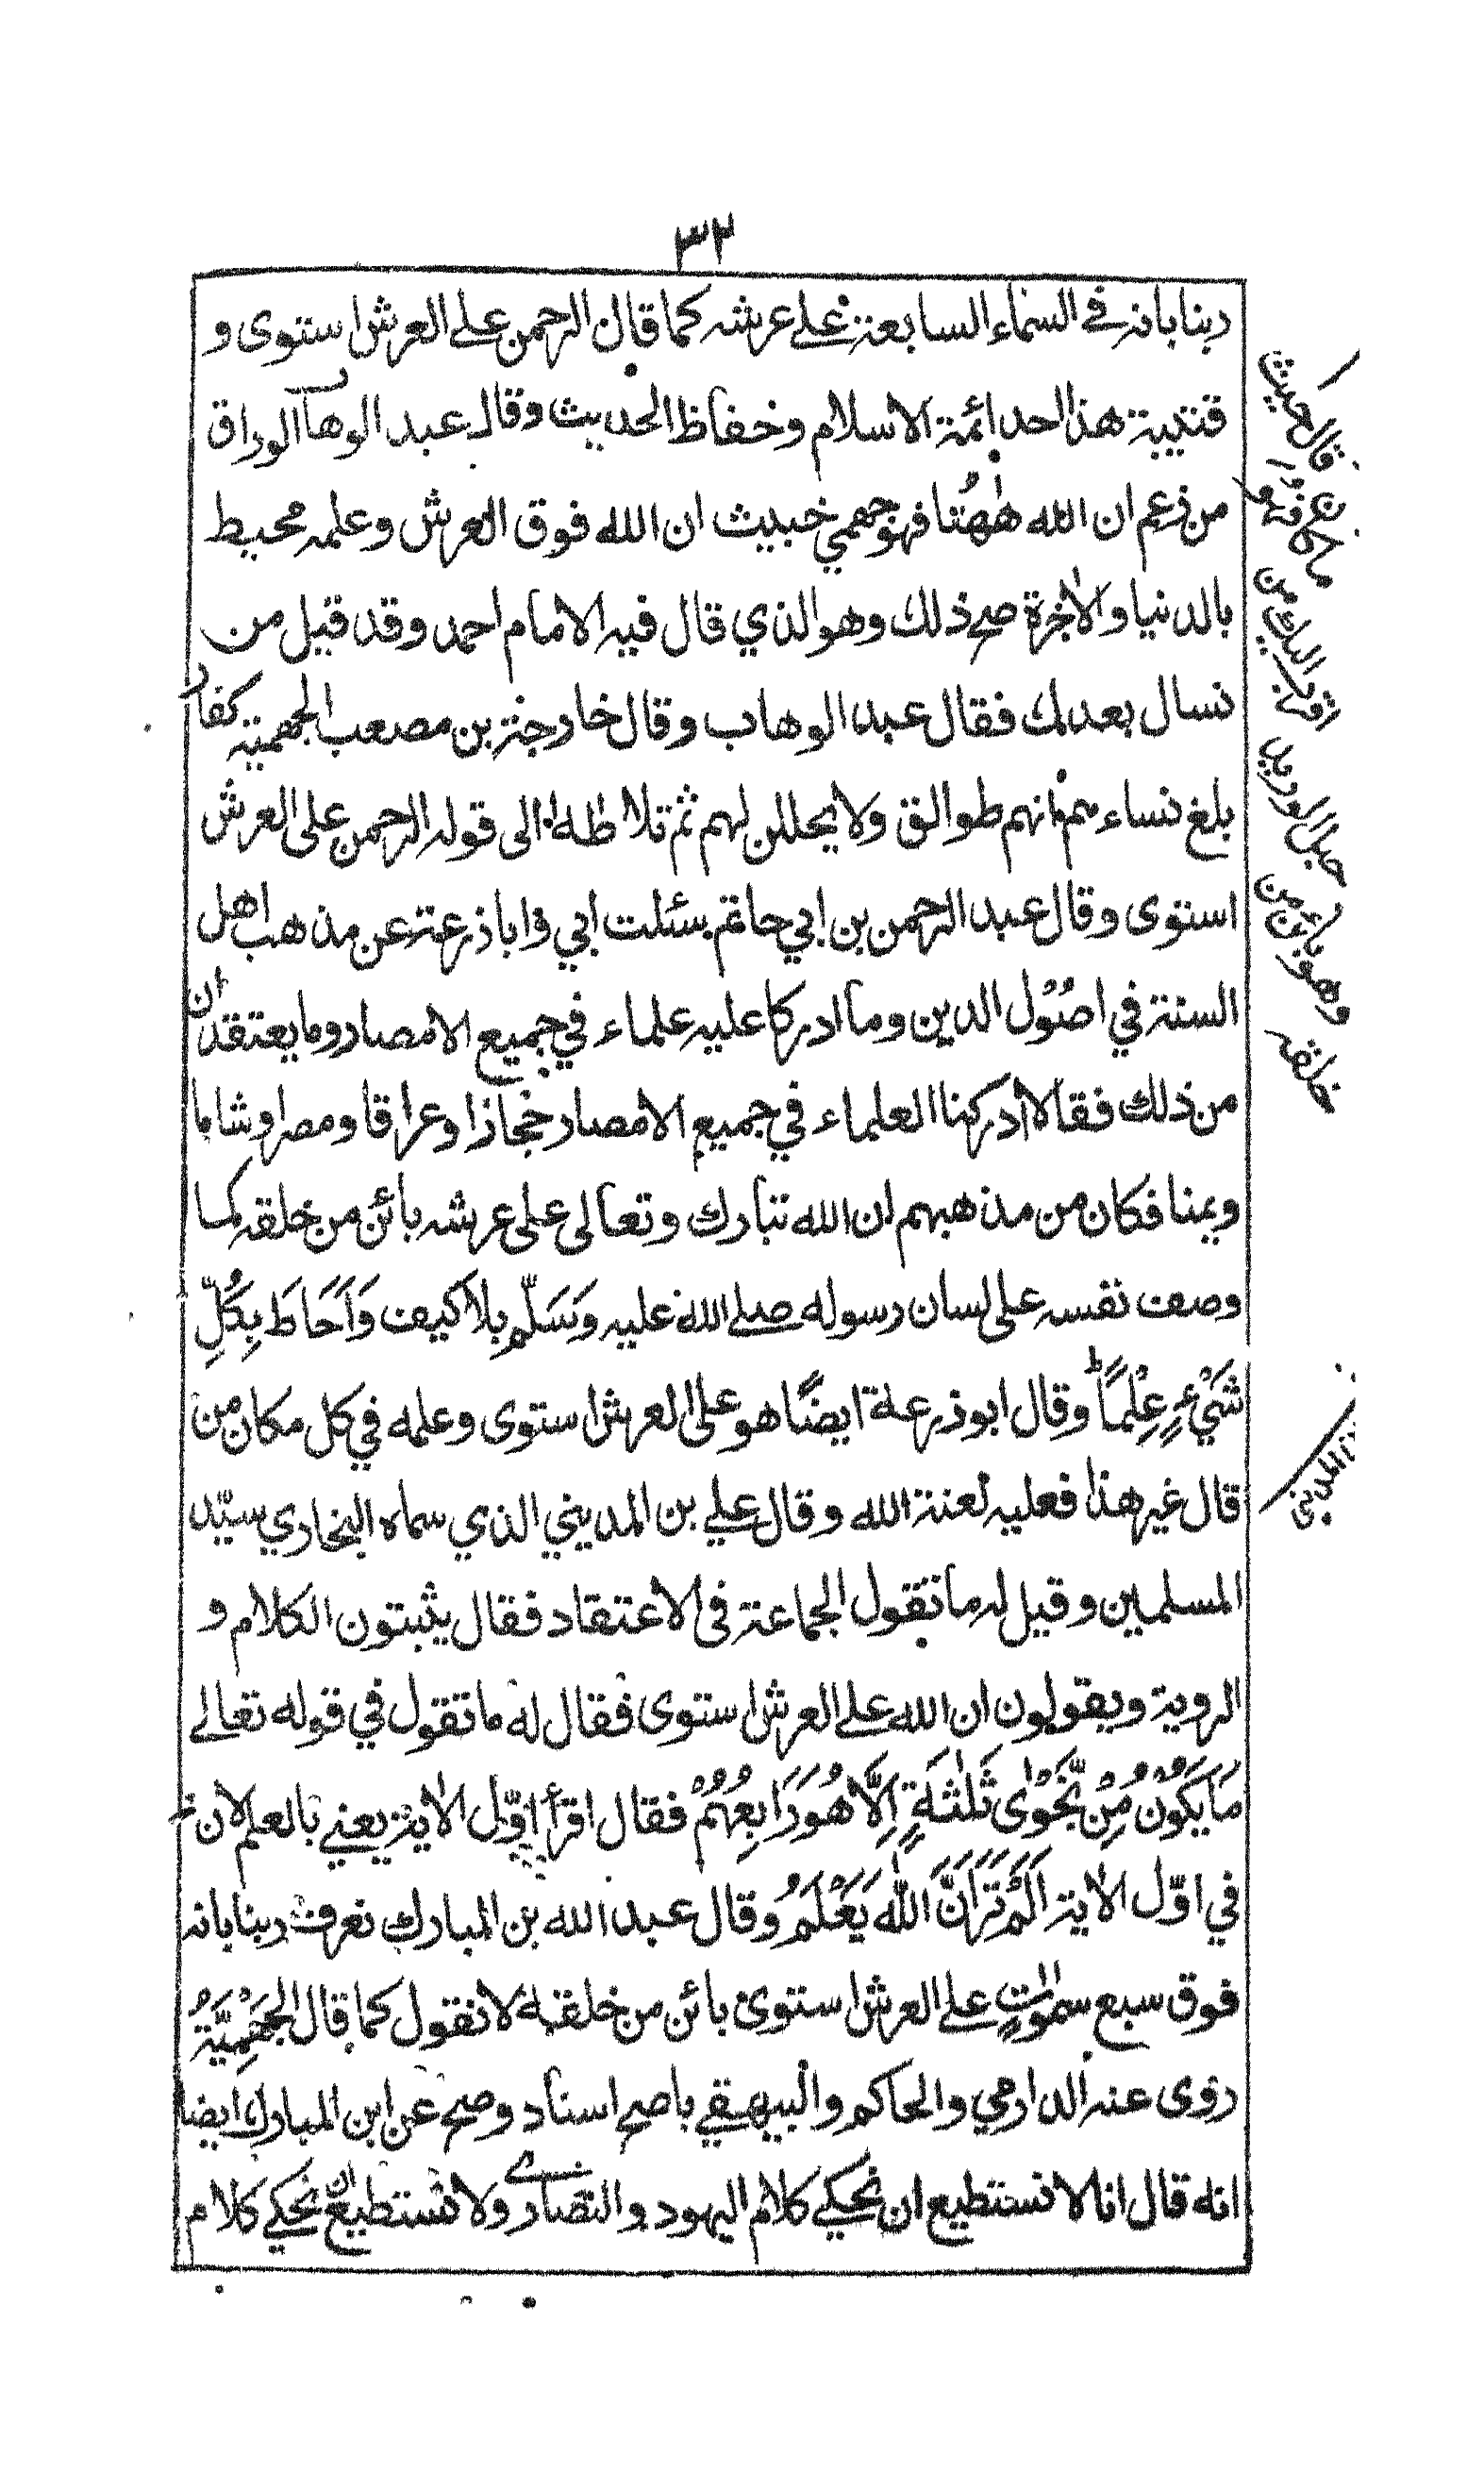 ٣٢
ربنا بانه في السماء السابعة على عرشه كما قال الرحمن على العرش استوى و
قتيبة هذا احد ائمة الاسلام وحفاظ الحديث وقال عبد الوهاب الوراق
من زعم ان الله ههُنا فهو جهمي خبيث ان الله فوق العرش وعلمه محيط
بالدنيا والاخرة صح ذلك وهو الذي قال فيه الامام احمد وقد قيل من
نسال بعدك فقال عبد الوهاب وقال خارجة بن مصعب الجهمية كفار
بلغ نساءهم انهم طوالق ولا يحللن لهم ثم تلا طه الى قوله الرحمن على العرش
استوى وقال عبد الرحمن بن ابي حاتم سئلت ابي وابا ذرعة عن مذهب اهل
السنة في اصُوْل الدين وما ادركا عليه علماء في جميع الامصار وما يعتقدان
من ذلك فقالا ادركنا العلماء في جميع الامصار حجازا وعراقا ومصرا وشاما
ويمنا فكان من مذهبهم ان الله تبارك وتعالى على عرشه بائن من خلقه كما
وصف نفسه على لسان رسوله صلى الله عليه وَسَلّم بلا كيف وَاَحَاطَ بِكُلِّ
شَيْءٍ عِلْمًا ط وقال ابو ذرعة ايضًا هو على العرش استوى وعلمه في كل مكان من
قال غير هذا فعليه لعنة الله وقال علي بن المديني الذي سماه البخاري سيّد
المسلمين وقيل له ما تقول الجماعة في الاعتقاد فقال يثبتون الكلام و
الروية ويقولون ان الله على العرش استوى فقال له ما تقول في قوله تعالى
مَا يَكُوْنُ مِنْ نَّجْوٰى ثَلٰثَةٍ اِلَّا هُوَ رَابِعُهُمْ فقال اقرأ اوّل الاية يعني بالعلم لان
في اوّل الاية اَلَمْ تَرَ اَنَّ اللّٰهَ يَعْلَمُ وقال عبد الله بن المبارك نعرف ربنا بانه
فوق سبع سموات على العرش استوى بائن من خلقه لا نقول كما قال الجَهْمِيَّةُ
روى عنه الدارمي والحاكم والبيهقي باصح اسناد وصح عن ابن المبارك ايضا
انه قال انا لا نستطيع ان نحكي كلام اليهود والنصارى ولا نستطيع ان نحكي كلام
قال حيث
كان فهو
اقرب اليك من
حبل الوريد
وهو بائن من
خلقه
المديني